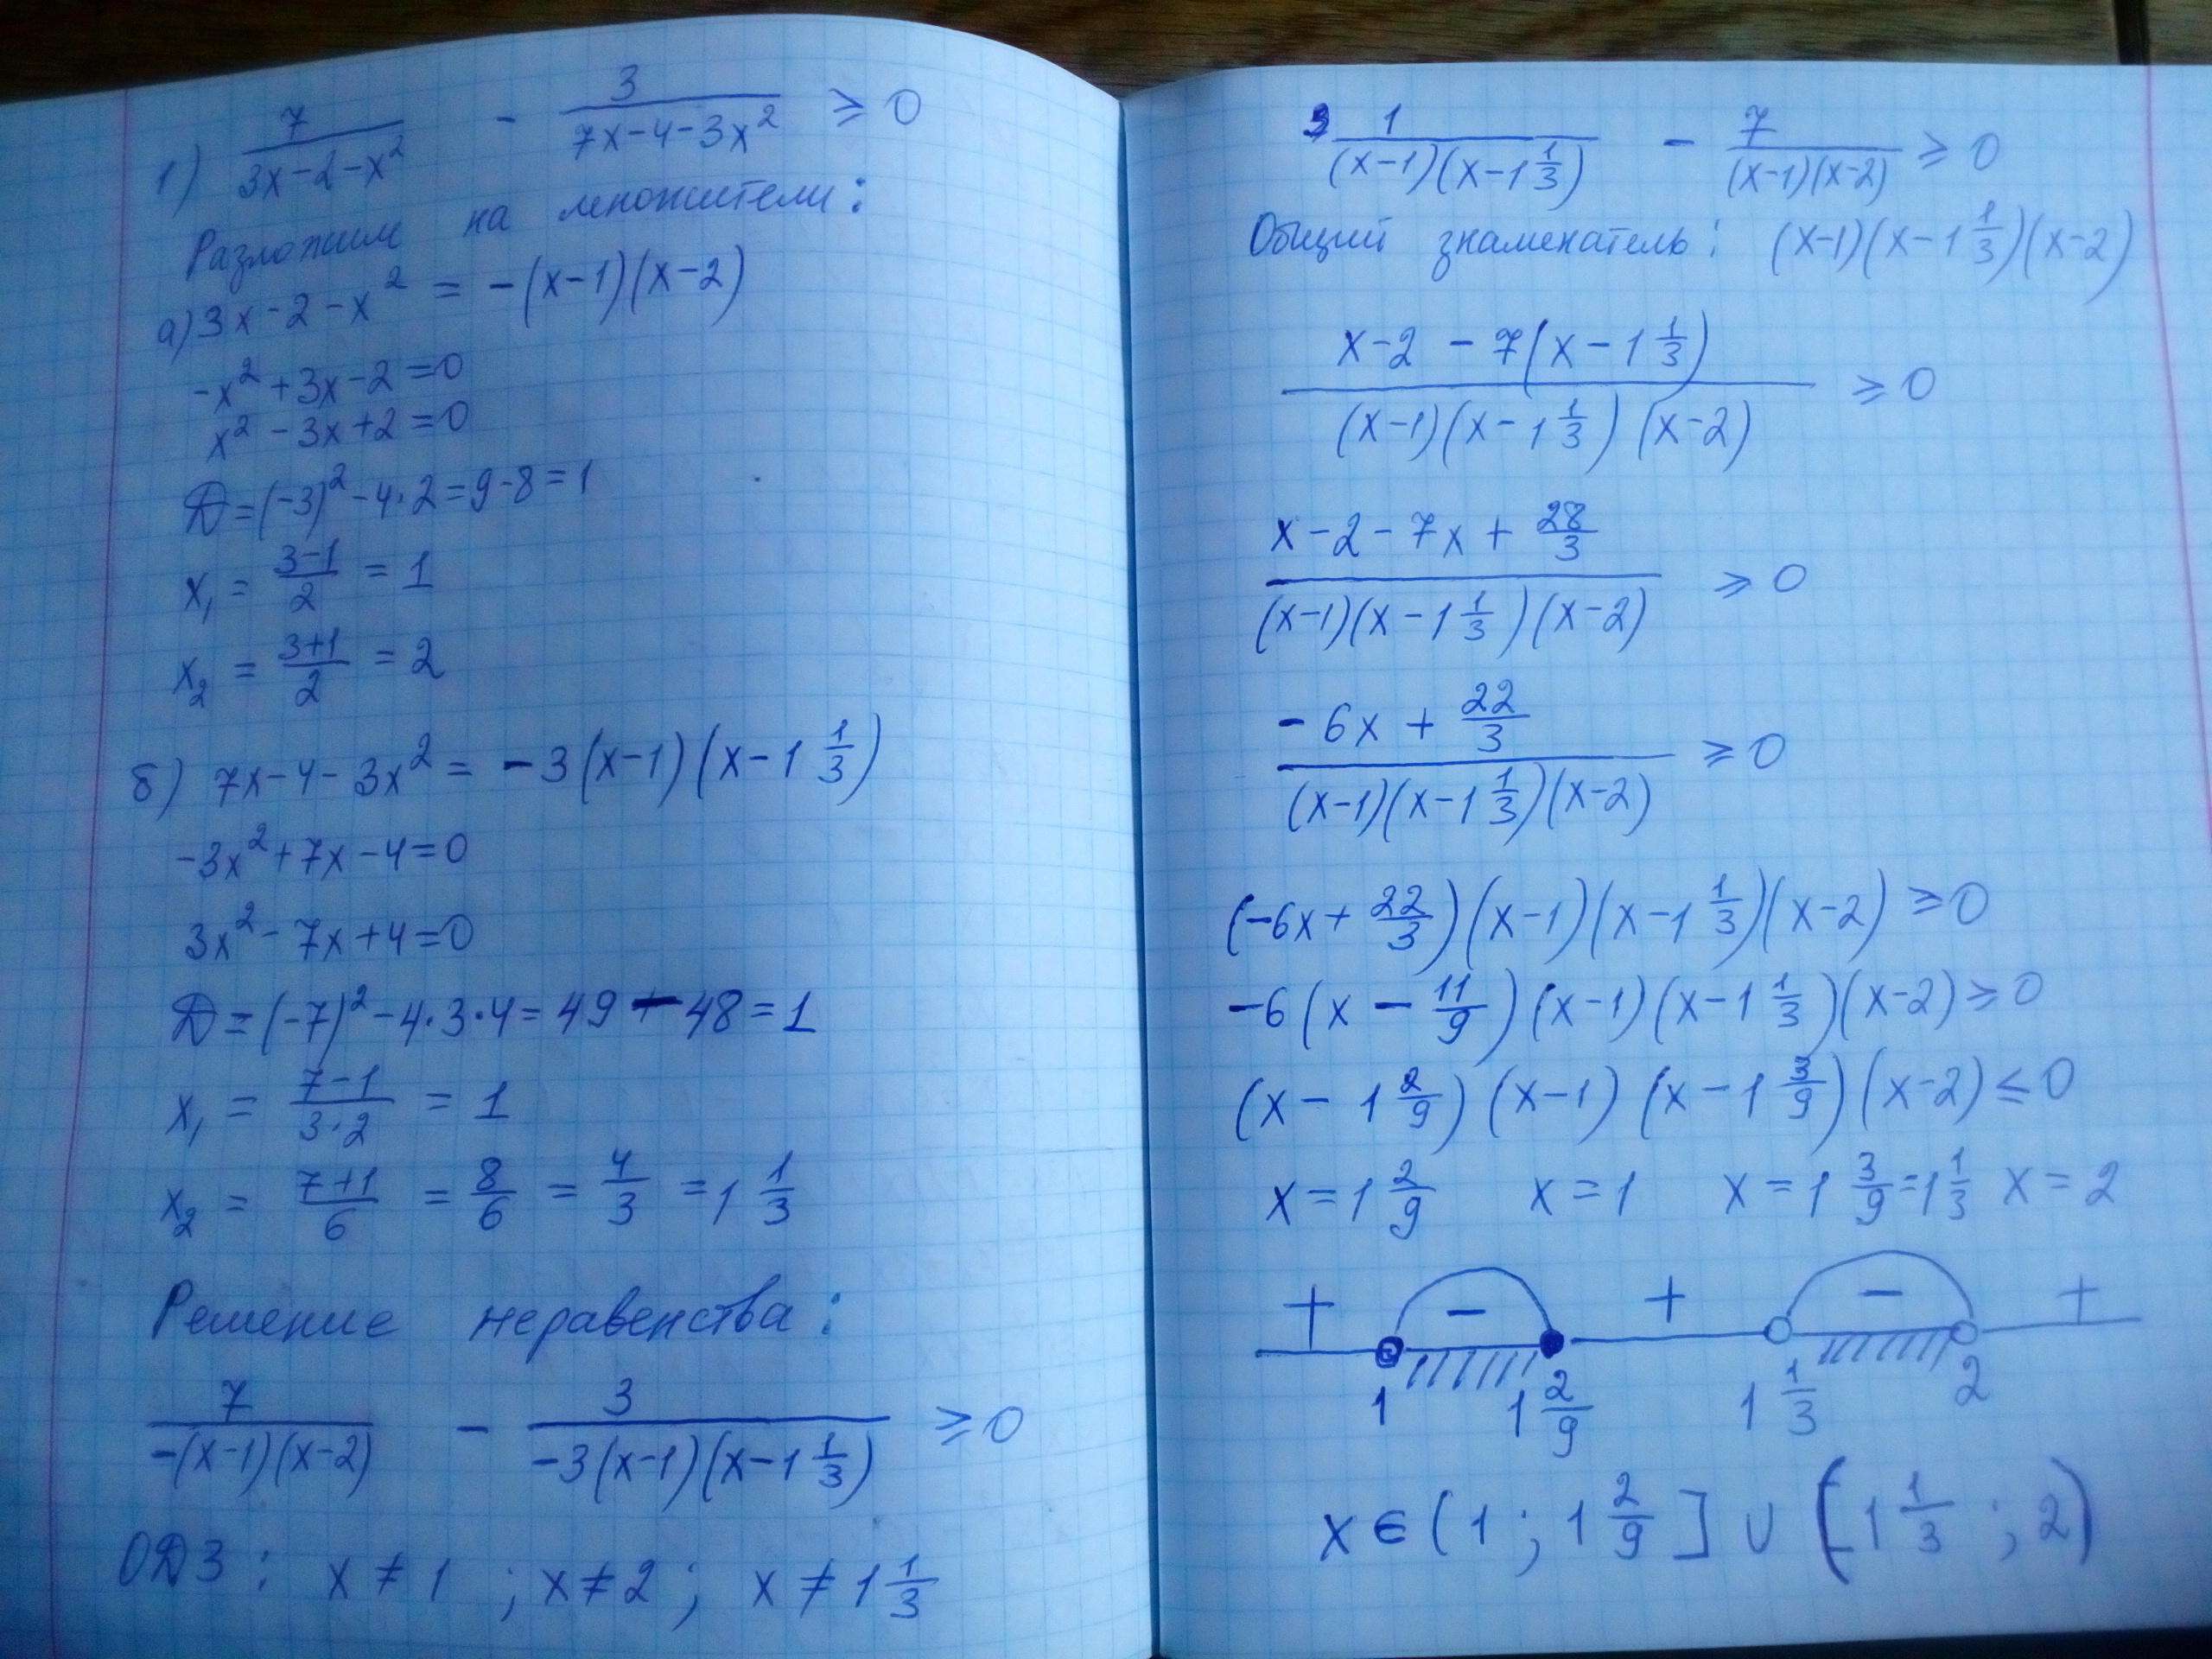 1) 7/(3x-2-x²) - 3/(7x-4-3x²) ≥ 0
Разложим на множители:
а) 3x-2-x² = -(x-1)(x-2)
-x²+3x-2=0
x²-3x+2=0
D=(-3)²-4·2=9-8=1
x₁ = (3-1)/2 = 1
x₂ = (3+1)/2 = 2
б) 7x-4-3x² = -3(x-1)(x-1 1/3)
-3x²+7x-4=0
3x²-7x+4=0
D=(-7)²-4·3·4=49-48=1
x₁ = (7-1)/(3·2) = 1
x₂ = (7+1)/6 = 8/6 = 4/3 = 1 1/3
Решение неравенства:
7/(-(x-1)(x-2)) - 3/(-3(x-1)(x-1 1/3)) ≥ 0
ОДЗ: x≠1 ; x≠2 ; x≠1 1/3
1/((x-1)(x-1 1/3)) - 7/((x-1)(x-2)) ≥ 0
Общий знаменатель: (x-1)(x-1 1/3)(x-2)
(x-2-7(x-1 1/3))/((x-1)(x-1 1/3)(x-2)) ≥ 0
(x-2-7x+28/3)/((x-1)(x-1 1/3)(x-2)) ≥ 0
(-6x+22/3)/((x-1)(x-1 1/3)(x-2)) ≥ 0
(-6x+22/3)(x-1)(x-1 1/3)(x-2) ≥ 0
-6(x-11/9)(x-1)(x-1 1/3)(x-2) ≥ 0
(x-1 2/9)(x-1)(x-1 3/9)(x-2) ≤ 0
x=1 2/9 x=1 x=1 3/9=1 1/3 x=2
+ - + - +
1 1 2/9 1 1/3 2
x∈(1 ; 1 2/9] ∪ (1 1/3 ; 2)